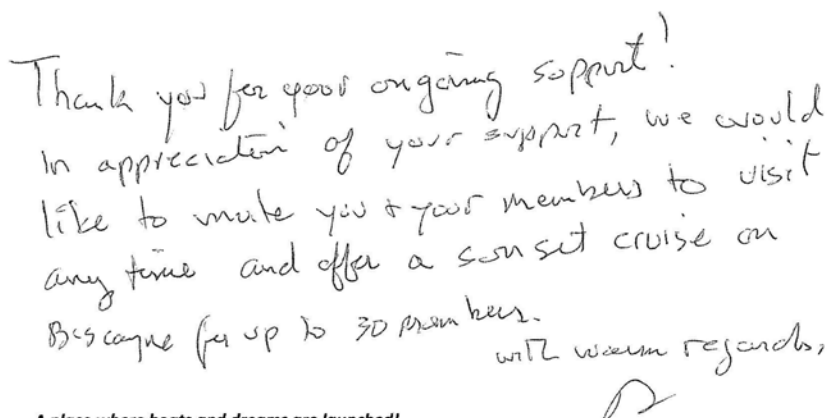 Thank you for your ongoing support!
In appreciation of your support, we would
like to invite you + your members to visit
any time and offer a sunset cruise on
Biscayne for up to 30 members.
with warm regards,
A place where boats and dreams are launched!